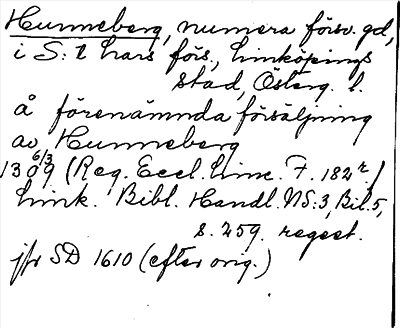 Hunneberg, numera försv. gd,
i S:t Lars förs., Linköpings
stad, Österg. l.
å förenämnda försäljning
av Hunneberg
1309 6/3 (Reg. Eccl. Linc. F. 182r)
Link. Bibl. Handl. NS:3, Bil. 5,
s. 259. regest.
jfr SD 1610 (efter orig.)